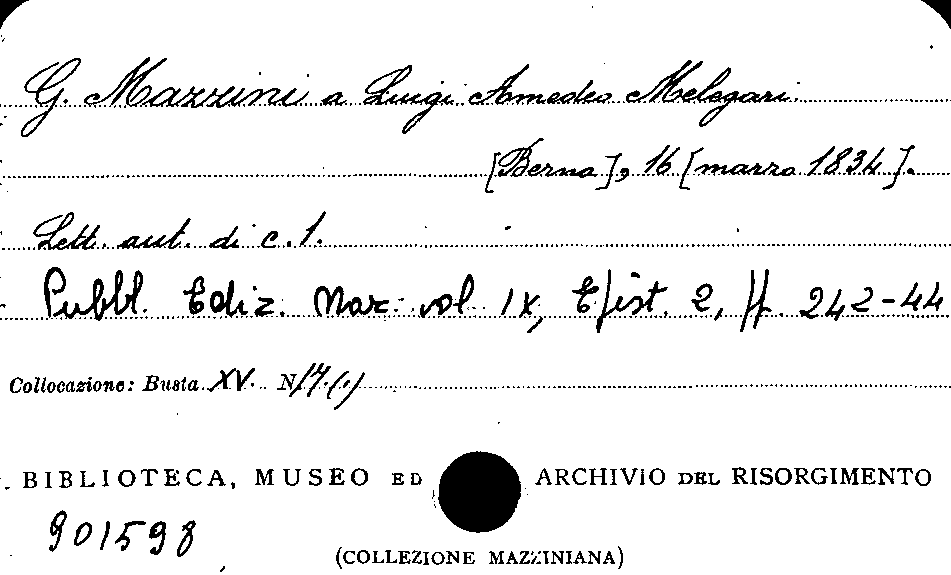 G. Mazzini a Luigi Amedeo Melegari.
[Berna], 16 [marzo 1834].
Lett. aut. di c. 1.
Pubbl. Ediz. Naz. vol IX, Epist. 2, pp. 242-44
Collocazione: Busta XV. N 17.(1)
BIBLIOTECA, MUSEO ED ARCHIVIO DEL RISORGIMENTO
901598
(COLLEZIONE MAZZINIANA)